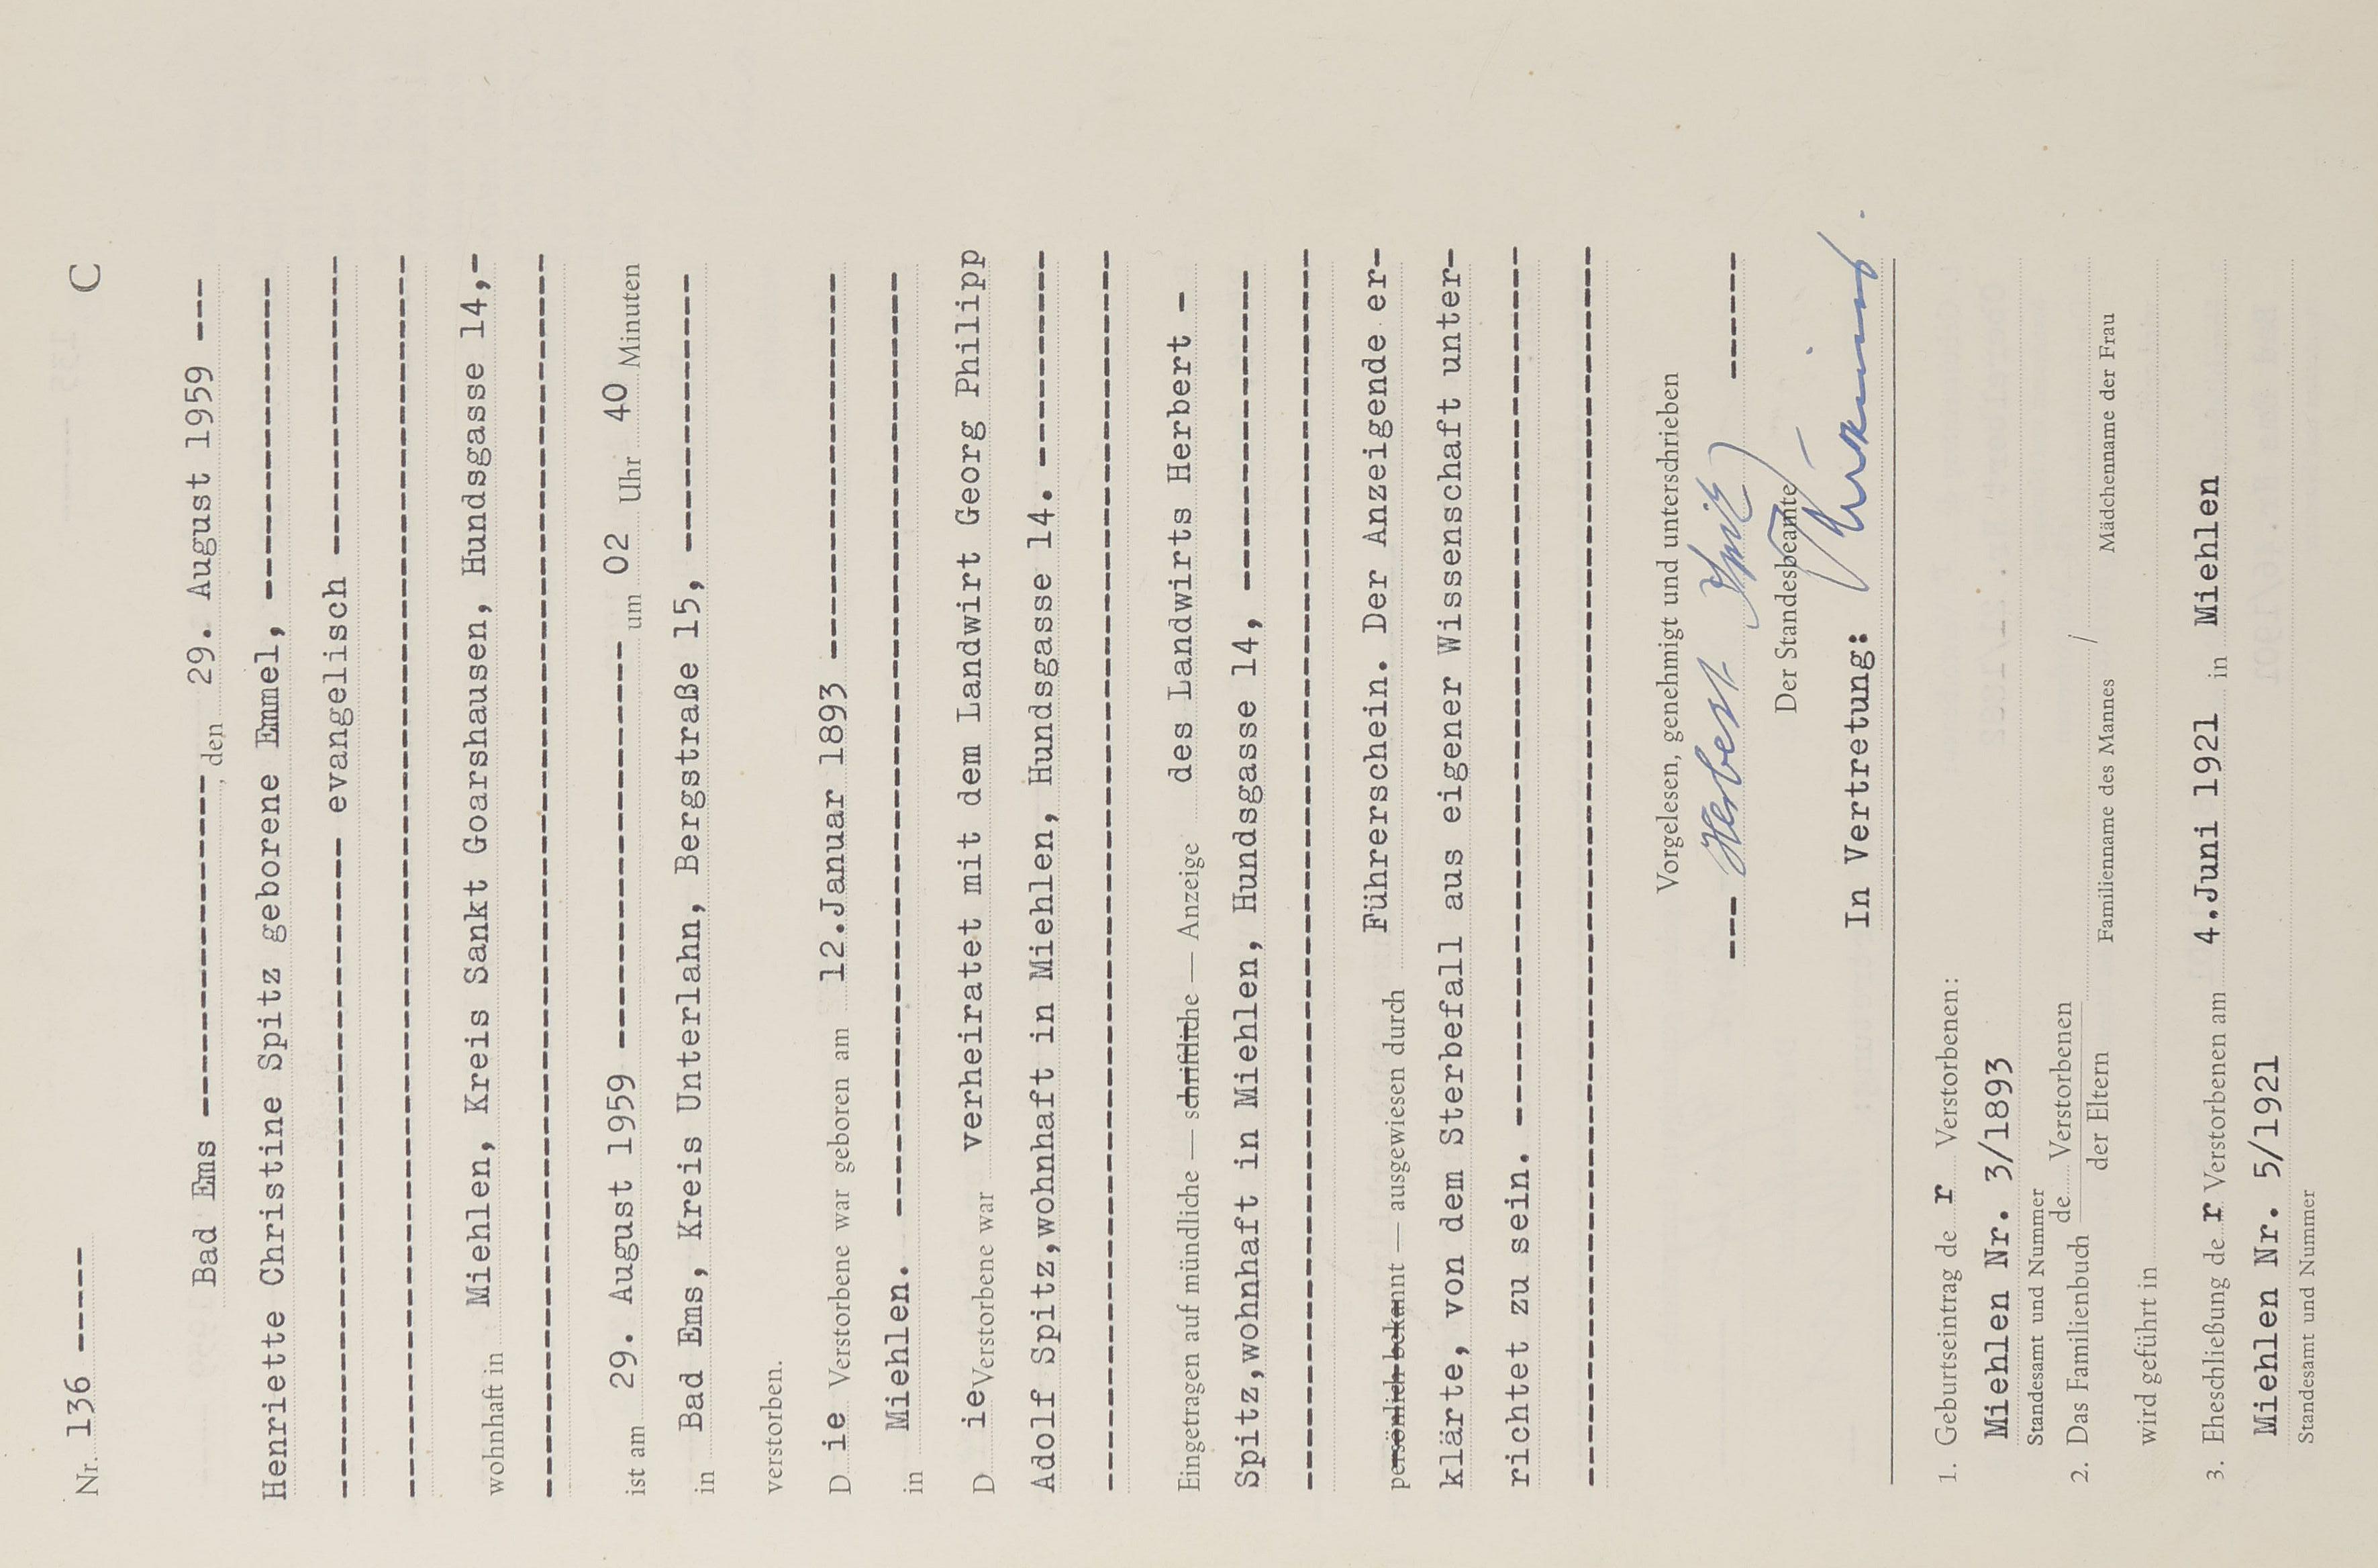 Nr. 136 ----- C
Bad Ems --------------------, den 29. August 1959 ---
Henriette Christine Spitz geborene Emmel, -------------------
---------------------------------------- evangelisch ------------------
wohnhaft in Miehlen, Kreis Sankt Goarshausen, Hundsgasse 14,-
ist am 29. August 1959 ------------------------ um 02 Uhr 40 Minuten
in Bad Ems, Kreis Unterlahn, Bergstraße 15, -----------------
verstorben.
Die Verstorbene war geboren am 12.Januar 1893 -----------------------
in Miehlen. --------------------------------------------------------
Die Verstorbene war verheiratet mit dem Landwirt Georg Philipp
Adolf Spitz,wohnhaft in Miehlen, Hundsgasse 14. -------------
Eingetragen auf mündliche — schriftliche — Anzeige des Landwirts Herbert -
Spitz,wohnhaft in Miehlen, Hundsgasse 14, -------------------
persönlich bekannt — ausgewiesen durch Führerschein. Der Anzeigende er-
klärte, von dem Sterbefall aus eigener Wissenschaft unter-
richtet zu sein. ----------------------------------------------------
Vorgelesen, genehmigt und unterschrieben
---- Herbert Spitz --------
Der Standesbeamte
In Vertretung:
1. Geburtseintrag de r Verstorbenen:
Miehlen Nr. 3/1893
Standesamt und Nummer
2. Das Familienbuch de Verstorbenen
der Eltern
/
Familienname des Mannes Mädchenname der Frau
wird geführt in
3. Eheschließung de r Verstorbenen am 4.Juni 1921 in Miehlen
Miehlen Nr. 5/1921
Standesamt und Nummer